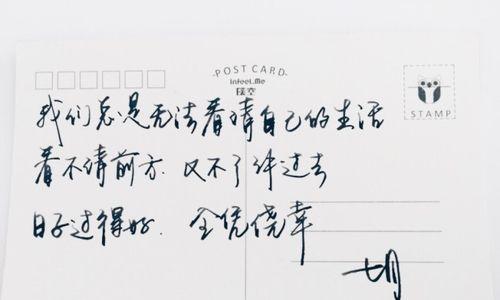 POST CARD
InFeeL.Me
STAMP
我们总是无法看清自己的生活
看不清前方. 又不了许过去
日子过得好. 全凭侥幸
七月